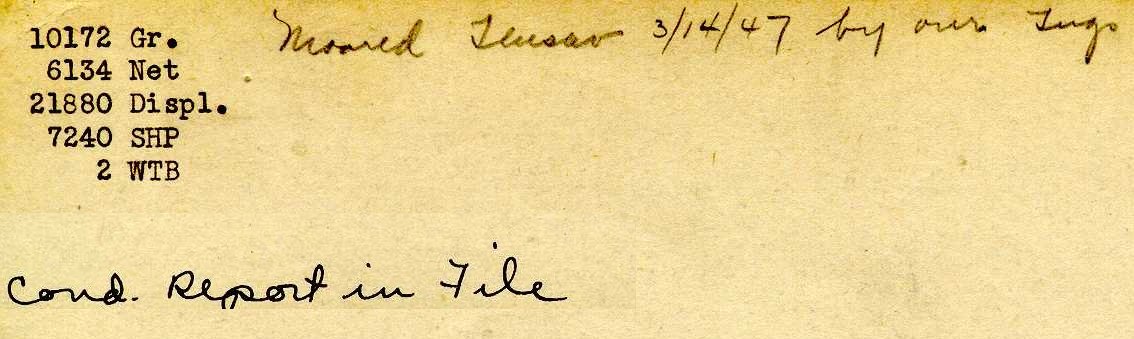 10172 Gr.
6134 Net
21880 Displ.
7240 SHP
2 WTB
Moored Tensaw 3/14/47 by our Tugs
Cond. Report in File